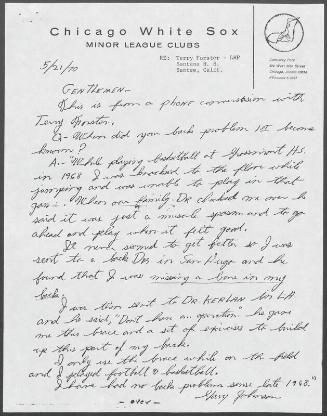 Chicago White Sox
MINOR LEAGUE CLUBS
RE: Terry Forster - LHP
Santana H. S.
Santee, Calif.
5/21/70
GENTLEMEN-
This is from a phone conversation with
Terry Forster.
Q- When did you back problem 1st become
known?
A.- While playing basketball at Grossmont H.S.
in 1968 I was knocked to the floor while
jumping and was unable to play in that
game. When our family DR checked me over he
said it was just a muscle spasm and to go
ahead and play when it felt good.
It never seemed to get better so I was
sent to a back DR. in San Diego and he
found that I was missing a bone in my
back.
I was then sent to DR KERLAN in L.A.
and he said, "Don't have an operation" he gave
me this brace and a set of exercises to build
up this part of my back.
I only use the brace while on the field
and I played football & basketball.
I have had no back problem sense late 1968."
Gary Johnson
- over -